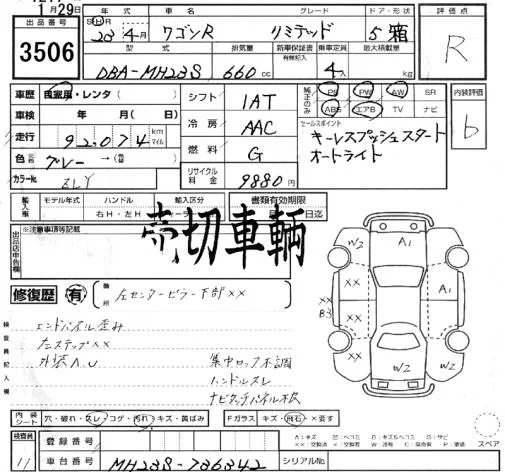 1月29日
年式 グレード ドア・形状 評価点
出品番号 3506
S H R 20年4月 ワゴンR リミテッド 5 箱 R
型式 排気量 新車保証書 乗車定員 最大積載量
有無記入
DBA-MH23S 660cc 4人 kg
車歴 自家用・レンタ( ) シフト 1AT 純正のみ PS PW AW SR 内装評価
ABS エアB TV ナビ b
車検 年 月( 日) 冷房 AAC セールスポイント
キーレスプッシュスタート
オートライト
走行 92,074 km マイル 燃料 G
色 グレー →(色 ) リサイクル料金 9880円
カラーNo. ZLY
輸入車 モデル年式 ハンドル 輸入区分 書類有効期限
右H・左H ディーラー 月 日迄
※注意事項等記載
出品店申告欄
売切車輌
修復歴 有 箇所 左センターピラー下部××
検査員記入欄
エンドパネル歪み
左ステップ××
外装A.U 集中ロック不調
ハンドルスレ
ナビタッチパネル不良
W2 A1 ×× ×× B3 ×× A1 W2 W2
内装シート 穴・破れ・スレ・コゲ・汚れ・キズ・黄ばみ Fガラス キズ・飛石・×要す
A:キズ
スペア
検査員 11 登録番号
車台番号 MH23S-736342 シリアルNo.